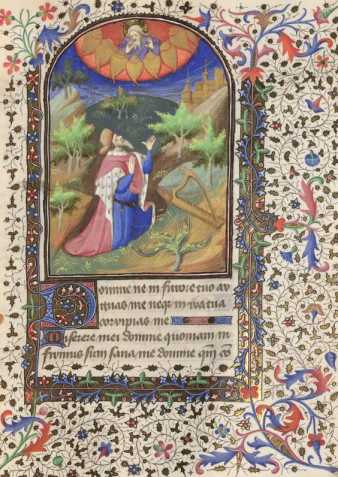 Domine ne in furore tuo ar
guas me neqz in ira tua
corripias me
Miserere mei domine quoniam in
firmus sum sana me domine qm co